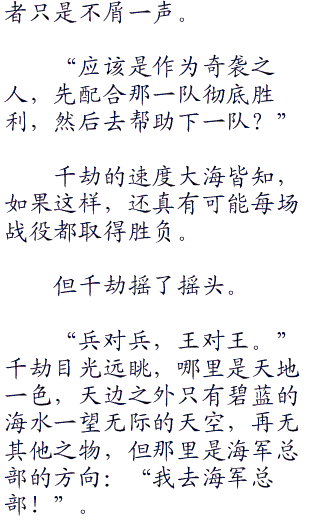 者只是不屑一声。
“应该是作为奇袭之
人，先配合那一队彻底胜
利，然后去帮助下一队？”
千劫的速度大海皆知，
如果这样，还真有可能每场
战役都取得胜负。
但千劫摇了摇头。
“兵对兵，王对王。”
千劫目光远眺，哪里是天地
一色，天边之外只有碧蓝的
海水一望无际的天空，再无
其他之物，但那里是海军总
部的方向：“我去海军总
部！”。